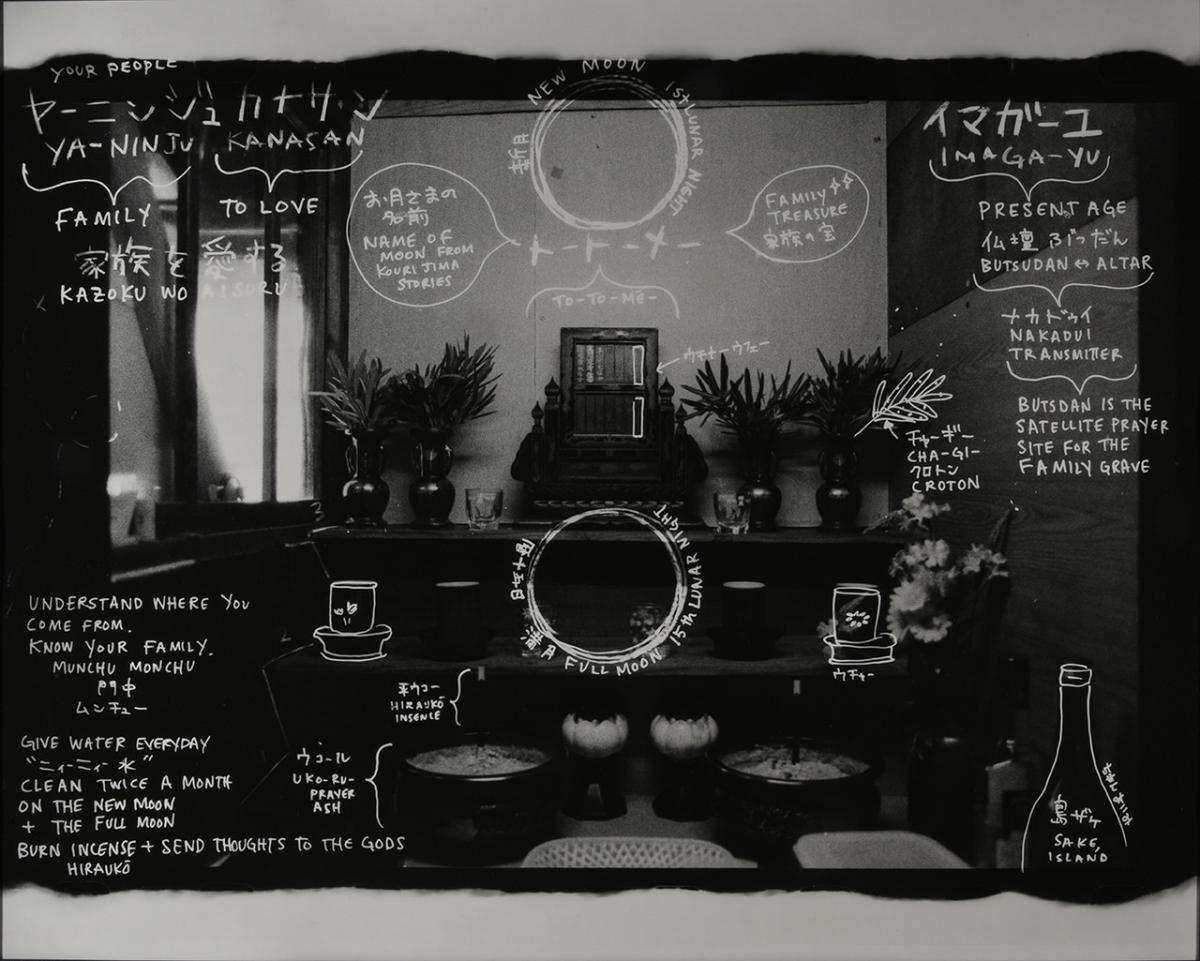 YOUR PEOPLE
ヤーニンジュ カナサン
YA-NINJU KANASAN
FAMILY TO LOVE
家族を愛する
KAZOKU WO AISURU
NEW MOON 1st LUNAR NIGHT
お月さまの
名前
NAME OF
MOON FROM
KOURI JIMA
STORIES
トートーメー
TO-TO-MĒ-
FAMILY
TREASURE
家族の宝
イマガーユ
IMAGA-YU
PRESENT AGE
仏壇 ぶつだん
BUTSUDAN ↔ ALTAR
ナカドゥイ
NAKADUI
TRANSMITTER
BUTSDAN IS THE
SATELLITE PRAYER
SITE FOR THE
FAMILY GRAVE
ウチナーウフェー
チャーギー
CHA-GI-
クロトン
CROTON
満月 FULL MOON 15th LUNAR NIGHT
UNDERSTAND WHERE YOU
COME FROM.
KNOW YOUR FAMILY.
MUNCHU MONCHU
門中
ムンチュー
GIVE WATER EVERYDAY
"ニィーニィー水"
CLEAN TWICE A MONTH
ON THE NEW MOON
+ THE FULL MOON
BURN INCENSE + SEND THOUGHTS TO THE GODS
HIRAUKŌ
平ウコー
HIRAUKŌ
INSENCE
ウコール
UKO-RU-
PRAYER
ASH
ウチャー
島ザケ
SAKE,
ISLAND